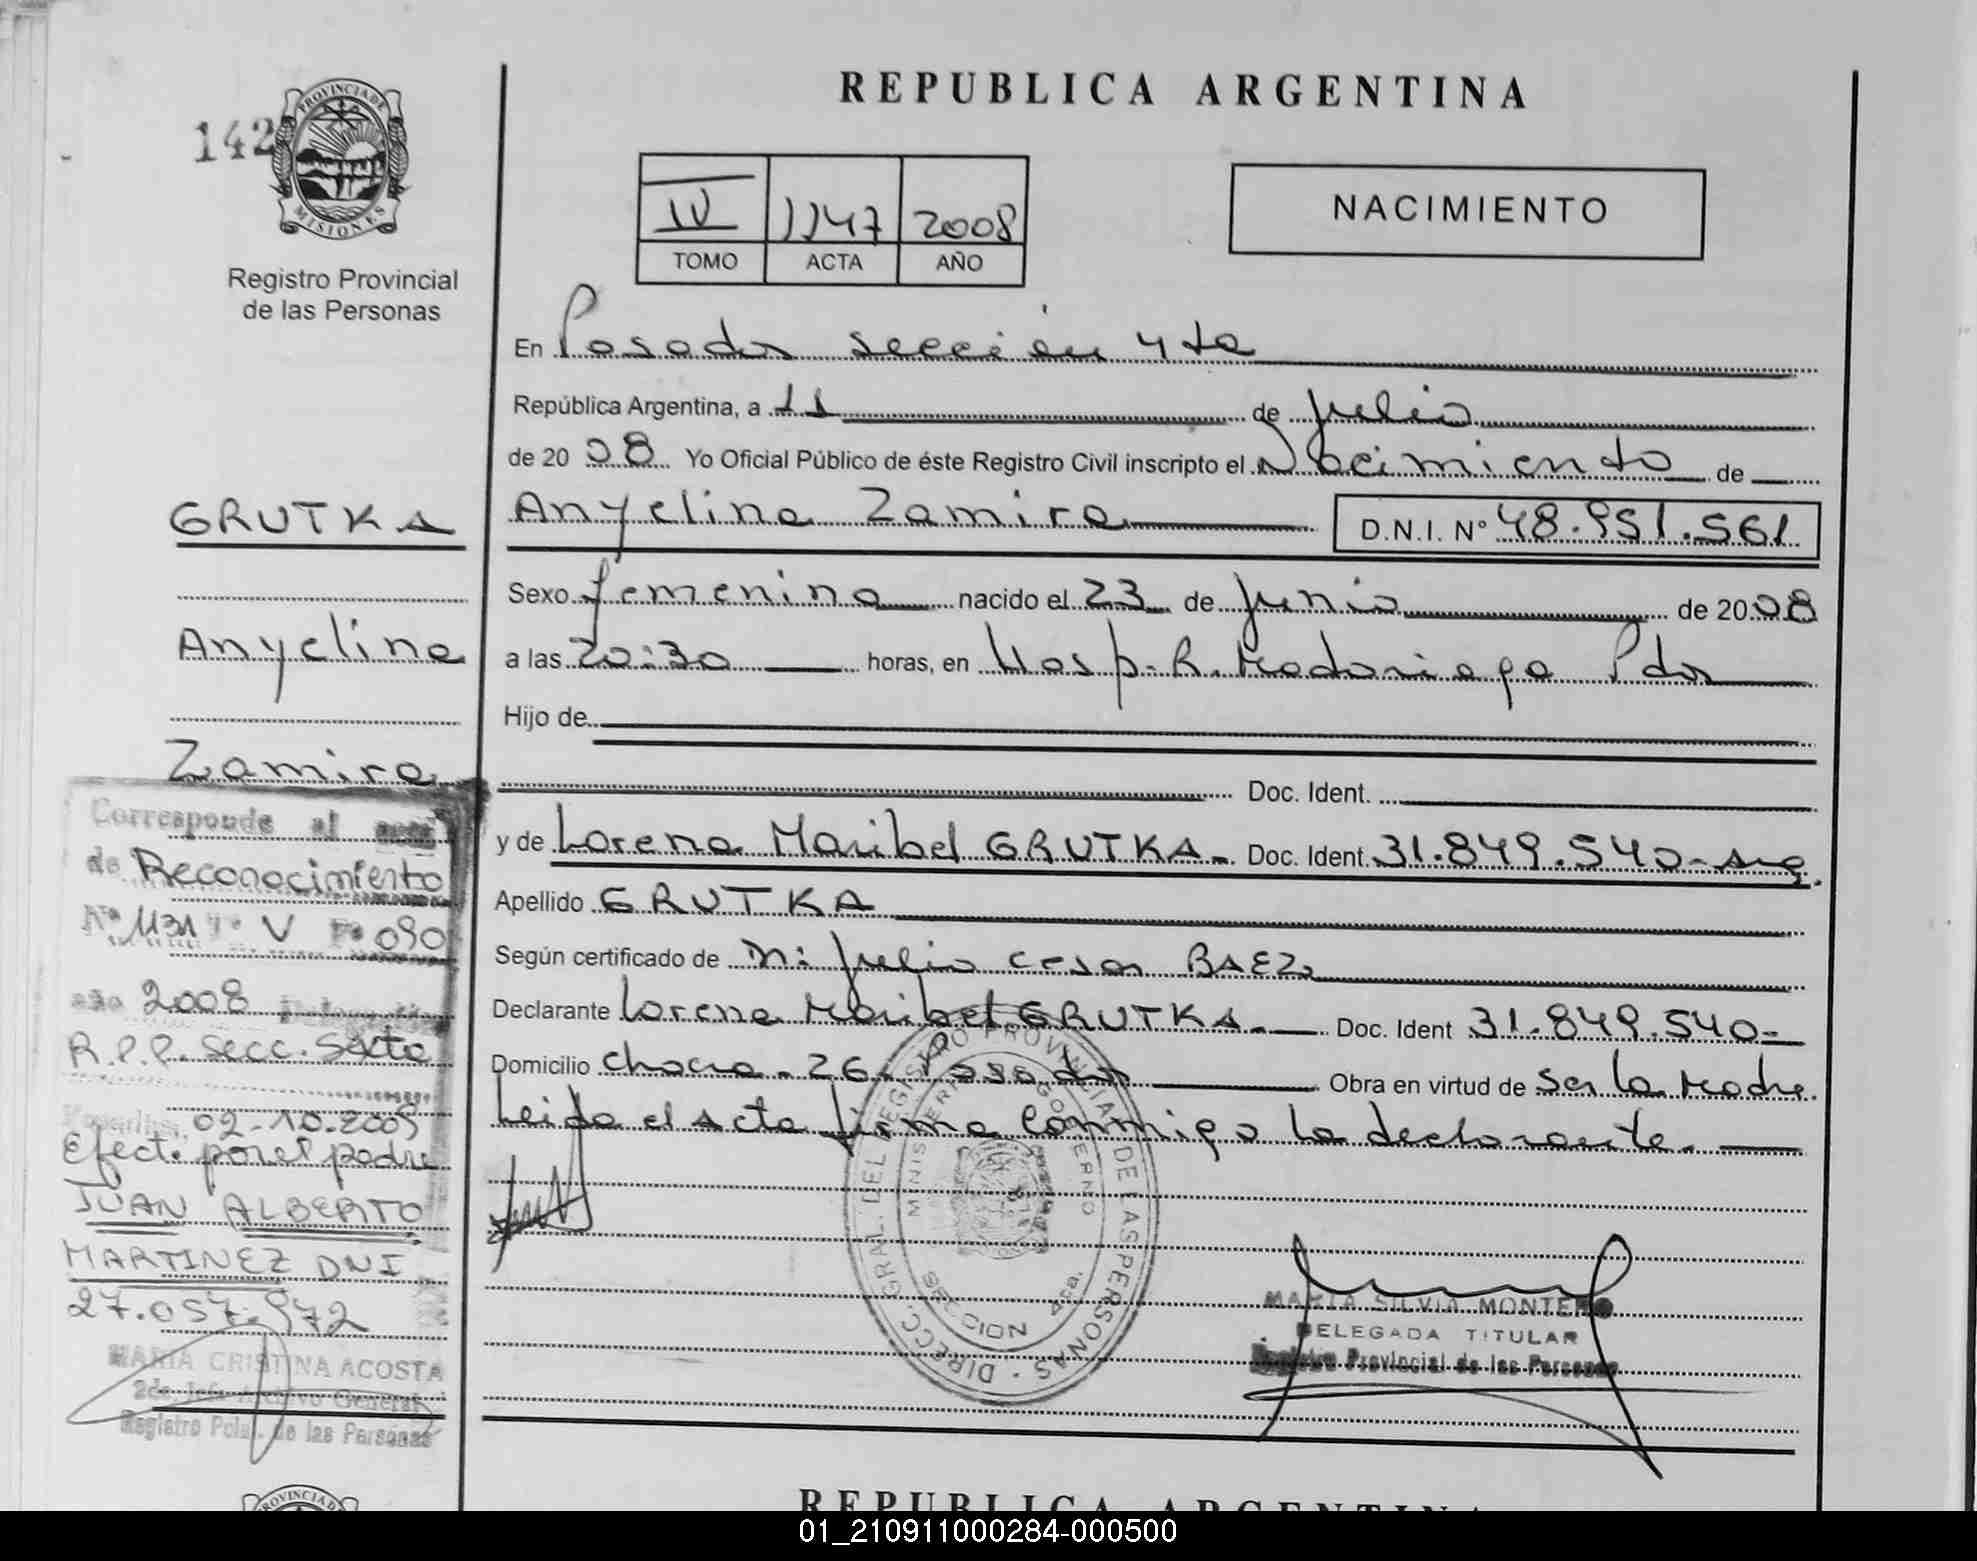 REPUBLICA ARGENTINA
142
PROVINCIA DE
MISIONES
Registro Provincial
de las Personas
IV 1147 2008
TOMO ACTA AÑO
NACIMIENTO
En Posadas sección 4ta
República Argentina, a 11 de julio
de 2008 Yo Oficial Público de éste Registro Civil inscripto el Nacimiento de
Anyelina Zamira D.N.I. Nº 48.951.561
Sexo femenino nacido el 23 de junio de 2008
a las 20:30 horas, en Hosp. R. Madariaga Pdas
Hijo de
Doc. Ident.
y de Lorena Maribel GRUTKA Doc. Ident. 31.849.540- arg.
Apellido GRUTKA
Según certificado de julio cesar BAEZ
Declarante Lorena Maribel GRUTKA. Doc. Ident 31.849.540-
Domicilio chacra - 26 Posadas Obra en virtud de ser la madre.
Leida el acta firma conmigo la declarante.
GRUTKA
Anyelina
Zamira
Corresponde al acta
de Reconocimiento
Nº 1131 Tº V Fº 090
año 2008
R.P.P. Secc. Sexta
Posadas, 02-10.2008
Efect. por el padre
JUAN ALBERTO
MARTINEZ DNI
27.057.972
MARIA CRISTINA ACOSTA
2da. Jefe Archivo General
Registro Pcial. de las Personas
DIRECC. GRAL. DEL REGISTRO PROVINCIAL DE LAS PERSONAS
MINISTERIO GOBIERNO
SECCION 4ta.
MARIA SILVIA MONTERO
DELEGADA TITULAR
Registro Provincial de las Personas
PROVINCIA D
REPUBLICA ARGENTINA
01_210911000284-000500